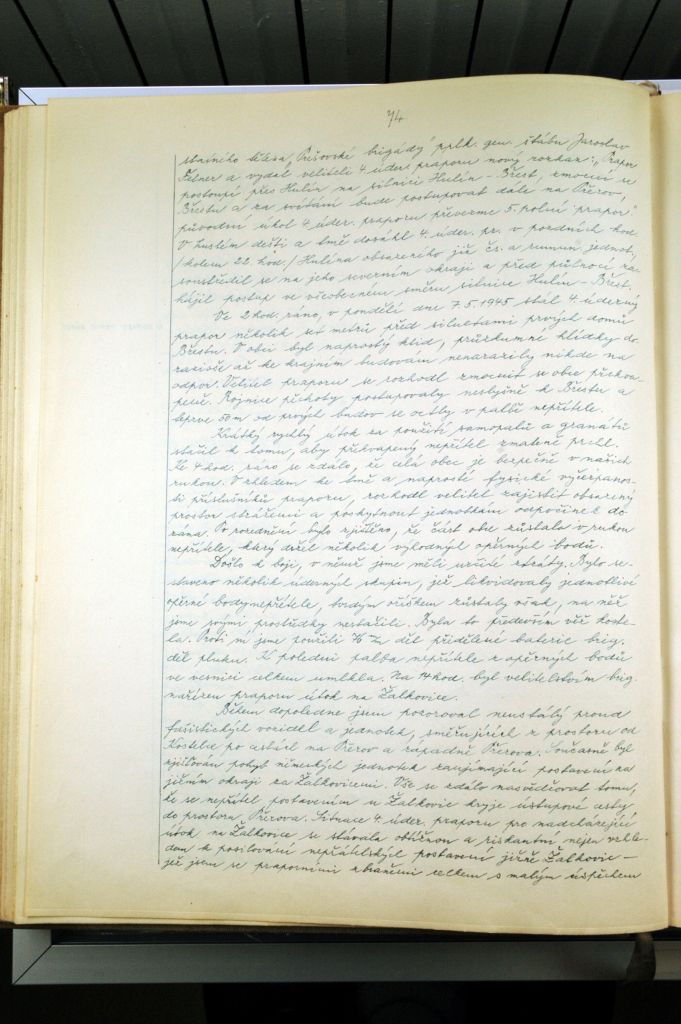 74
stavného tělesa „Prešovské brigády“ pplk. gen. štábu Jaroslav
Felner a vydal veliteli 4. úder. praporu nový rozkaz: „Prapor
postoupí přes Hulín na silnici Hulín – Břest, zmocní se
Břestu a za svítání bude postupovat dále na Přerov,
původní úkol 4. úder. praporu převezme 5. polní prapor.“
V hustém dešti a tmě dosáhl 4. úder. pr. v pozdních hod.
/kolem 22 hod./ Hulína obsazeného již čs. a rumun. jednot.,
soustředil se na jeho severním okraji a před půlnocí za-
hájil postup ve všeobecném směru silnice Hulín – Břest.
Ve 2 hod. ráno, v pondělí dne 7.5.1945 stál 4. úderný
prapor několik set metrů před siluetami prvých domů
Břestu. V obci byl naprostý klid, průzkumné hlídky do-
razivše až ke krajním budovám nenarazily nikde na
odpor. Velitel praporu se rozhodl zmocnit se obce překva-
pivě. Rojnice pěchoty postupovaly neslyšně k Břestu a
teprve 50 m od prvých budov se octly v palbě nepřítele.
Krátký rychlý útok za použití samopalů a granátů
stačil k tomu, aby překvapený nepřítel zmateně prchl.
Ke 4 hod. ráno se zdálo, že celá obec je bezpečně v našich
rukou. Vzhledem ke tmě a naprosté fysické vyčerpanos-
ti příslušníků praporu, rozhodl velitel zajistit obsazený
prostor strážemi a poskytnout jednotkám odpočinek do
rána. Po rozednění bylo zjištěno, že část obce zůstala v rukou
nepřítele, který držel několik výhodných opěrných bodů.
Došlo k boji, v němž jsme měli určité ztráty. Bylo se-
staveno několik úderných skupin, jež likvidovaly jednotlivé
opěrné body nepřítele, tvrdým oříškem zůstaly však, na něž
jsme svými prostředky nestačili. Byla to především věž koste-
la. Proti ní jsme použili děl přidělené baterie brig.
děl. pluku. K poledni palba nepřítele z opěrných bodů
ve vesnici celkem umlkla. Na 14 hod. byl velitelstvím brig.
nařízen praporu útok na Žalkovice.
Během dopoledne jsem pozoroval neustálý proud
fašistických vozidel a jednotek, směřujících z prostoru od
Kostelce po ústící na Přerov a západně Přerova. Současně byl
zjišťován pohyb německých jednotek zaujímající postavení na
jižním okraji za Žalkovicemi. Vše se zdálo nasvědčovat tomu,
že se nepřítel postavením u Žalkovic kryje ústupové cesty
do prostoru Přerova. Situace 4. úder. praporu pro nadcházející
útok na Žalkovice se stávala obtížnou a riskantní nejen vzhle-
dem k posilování nepřátelských postavení jižně Žalkovic –
jež jsem se praporními zbraněmi celkem s malým úspěchem